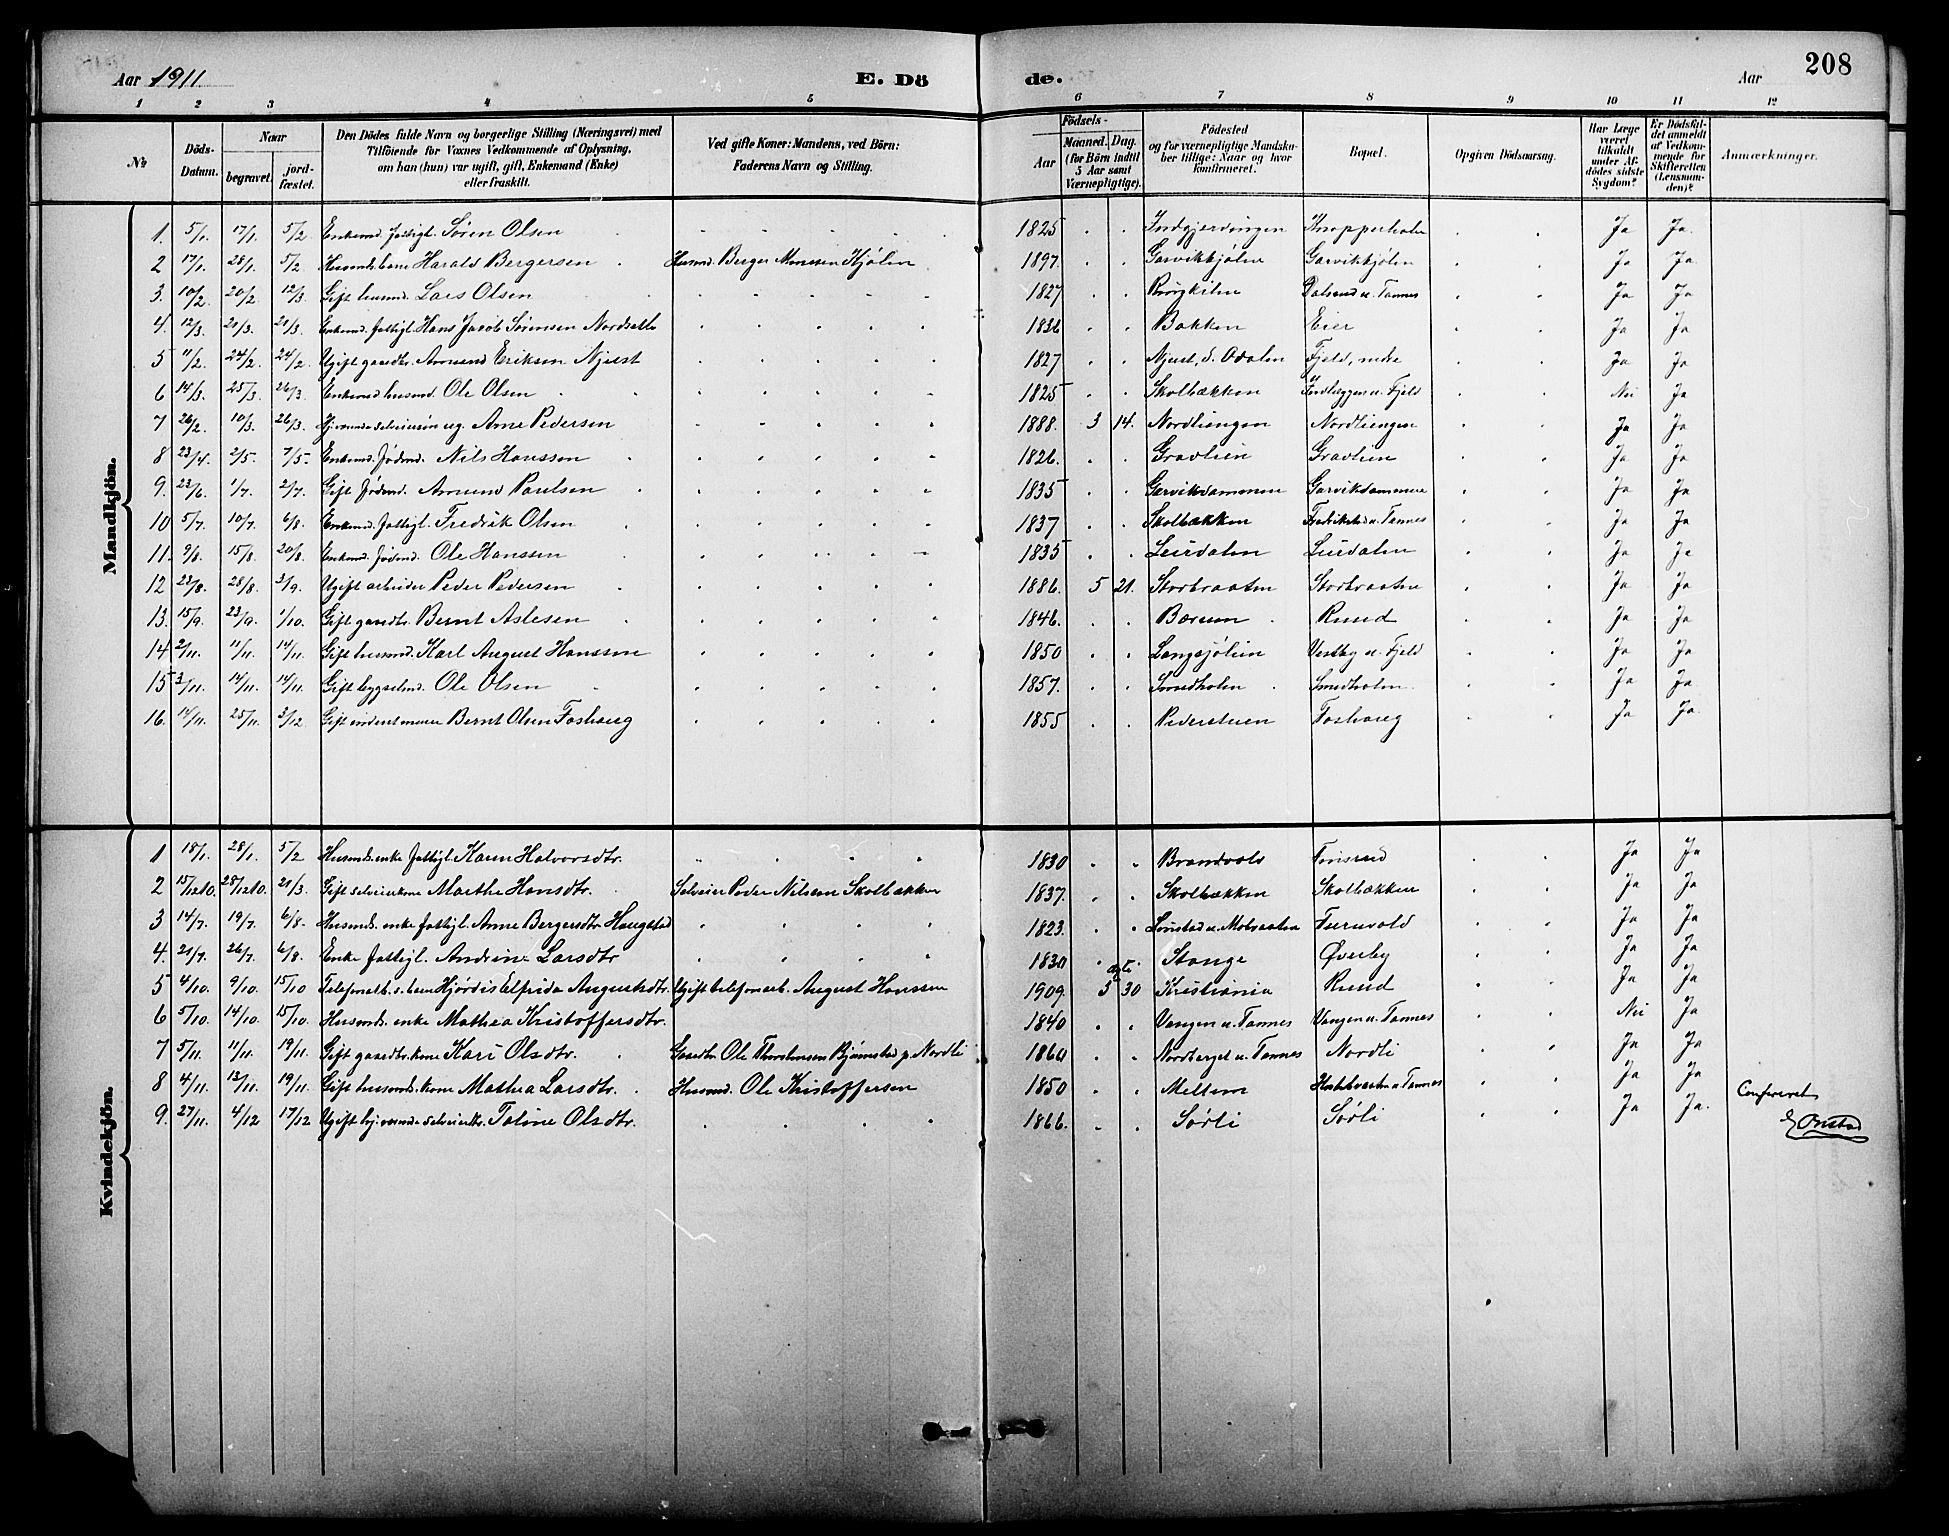 Aar 1911 E. Dö de. Aar 208
1 2 3 4 5 6 7 8 9 10 11 12
№ Döds-Datum. Naar begravet. jordfæstet. Den Dödes fulde Navn og borgerlige Stilling (Næringsvei) med Tilföiende for Voxnes Vedkommende af Oplysning, om han (hun) var ugift, gift, Enkemand (Enke) eller fraskilt. Ved gifte Koner: Mandens, ved Börn: Faderens Navn og Stilling. Födsels- Aar Maaned. Dag. (for Börn indtil 5 Aar samt Værnepligtige). Födested og for værnepligtige Mandskaber tillige: Naar og hvor konfirmeret. Bopæl. Opgiven Dödsaarsag. Har Læge været tilkaldt under Afdödes sidste Sygdom? Er Dödsfaldet anmeldt af Vedkommende for Skifteretten (Lensmanden)? Anmærkninger.
Mandkjön.
1. 5/1. 17/1. 5/2. Enkemd. fattigl. Søren Olsen 1825 Indgjerdingen Knapperholen Ja Ja.
2 17/1. 28/1. 5/2 Husmds. barn Harald Bergersen Husmd. Berger Monssen Kjølen 1897. Garvikkjølen Garvikkjølen Ja Ja.
3. 10/2. 20/2 12/3. Gift husmd. Lars Olsen 1827 Dalsend u. Tannes Ja Ja
4. 12/3. 21/3. 21/3. Enkemd. fattigl. Hans Jacob Sørensen Nordsætle 1836 Bakken Eier Ja Ja
5 11/2. 24/2. 24/2. Ugift gaardbr. Amund Eriksen Njust 1827 Njust, S. Odalen Fjeld, nedre Ja Ja
6 14/3. 25/3. 26/3. Enkemd husmd. Ole Olsen 1825 Skolbækken u. Fjeld Nei Ja
7 26/2. 10/3. 26/3. Hjemme selveiersøn ug. Arne Pedersen 1888. 3 14. Nordliengen Nordliengen Ja Ja
8 23/4. 2/5. 7/5. Enkemd. fødrmd. Nils Hanssen 1826. Gravlien Gravlien Ja Ja
9. 23/6. 1/7. 2/7. Gift fødmd. Amund Paulsen 1835 Garvikdammen Garvikdammen Ja Ja
10 5/7. 10/7 6/8. Enkemd. fattigl. Fredrik Olsen 1837 Skolbækken Fredrikshei u. Tannes Ja Ja
11. 9/8. 15/8. 20/8. Enkemd. fødmd. Ole Hanssen 1835 Leirdalen Leirdalen Ja Ja
12 23/8. 28/8 3/9. Ugift arbeider Peder Pedersen 1886. 5 21. Storbraaten Storbraaten Ja Ja
13. 15/9. 23/9. 1/10. Gift gaardbr. Bernt Aslesen 1846. Bærum Ruud Ja Ja
14 2/11. 11/11. 14/11. Gift husmd. Karl August Hanssen 1850 Langsjølien Vestby u. Fjeld Ja Ja
15 3/11. 14/11. 14/11. Gift bygselmd. Ole Olsen 1857. Smedholen Smedholen Ja Ja
16. 14/11. 25/11. 3/12 Gift Bernt Olsen Foshaug 1855 Pederstuen Foshaug Ja Ja.
Kvindekjön.
1 18/1. 28/1. 5/2 Husmds. enke fattigl. Karen Halvorsdtr. 1830 Brandvold Ja Ja
2 15/12 10. 28/12 10. 21/3. Gift selveierkone Marthe Hansdtr. Selveier Peder Nilsen Skolbækken 1837. Skolbækken Skolbækken Ja Ja
3 14/7. 19/7. 6/8. Husmds. enke fattigl. Anne Bergersdtr Haugstad 1823. Furuvold Ja Ja
4. 21/7. 26/7. 6/8. Enke fattigl. Andrine Larsdtr 1830 Stange Øverby Ja Ja
5 4/10. 9/10. 15/10 Telefonarb. s. barn Hjørdis Elfrida Augustsdtr. Ugift telefonarb. August Hanssen 1909. 5 30 Kristiania Ruud Ja Ja
6 5/10. 14/10. 15/10. Husmds. enke Mathea Kristoffersdtr. 1840 Vangen u. Tannes Vangen u. Tannes Nei Ja
7 5/11. 11/11. 19/11. Gift gaardbr. kone Kari Olsdtr. Gaardbr Ole Thorstensen Bjørnstad p. Nordli 1860 Nordberget u. Tannes Nordli Ja Ja
8 4/11. 13/11. 19/11. Gift husmds. kone Mathea Larsdtr. Husmd. Ole Kristoffersen 1850 Meltem u. Tannes Ja Ja Confereret
9. 27/11. 4/12 17/12 Ugift hj. selveierdtr. Toline Olsdtr. 1866. Sørli Sørli Ja Ja. Onstad